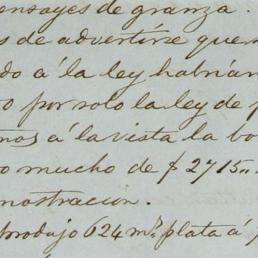 ensayes de granza.
s de advertirse que
do á la ley habrian
o por solo la ley de
mos á la vista la bo
o mucho de $ 2715"
mostracion.
produjo 624 m.s plata á